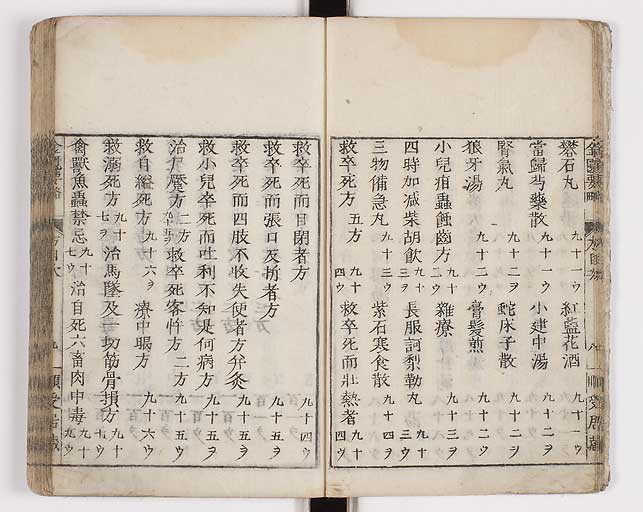 礬石丸 九十一ウ 紅藍花酒 九十一ウ
當歸芍藥散 九十一ウ 小建中湯 九十二ヲ
腎氣丸 九十二ヲ 蛇床子散 九十二ヲ
狼牙湯 九十二ウ 膏髮煎 九十二ウ
小兒疳蟲蝕齒方 九十二ウ 雜療 九十三ヲ
四時加减柴胡飲 九十三ヲ 長服訶梨勒丸 九十三ウ
三物備急丸 九十三ウ 紫石寒食散 九十四ヲ
救卒死方 五方 九十四ウ 救卒死而壯熱者 九十四ウ
救卒死而目閉者方 九十四ウ
救卒死而張口反折者方 九十五ヲ
救卒死而四肢不收失便者方弁灸 九十五ヲ
救小兒卒死而吐利不知是何病方 九十五ヲ
治尸蹷方 二方 九十五ウ 救卒死客忤方 二方 九十五ウ
救自縊死方 九十六ヲ 療中暍方 九十六ウ
救溺死方 九十七ヲ 治馬墜及一切筋骨損方 九十七ウ
禽獸魚蟲禁忌 九十七ウ 治自死六畜肉中毒 九十九ウ